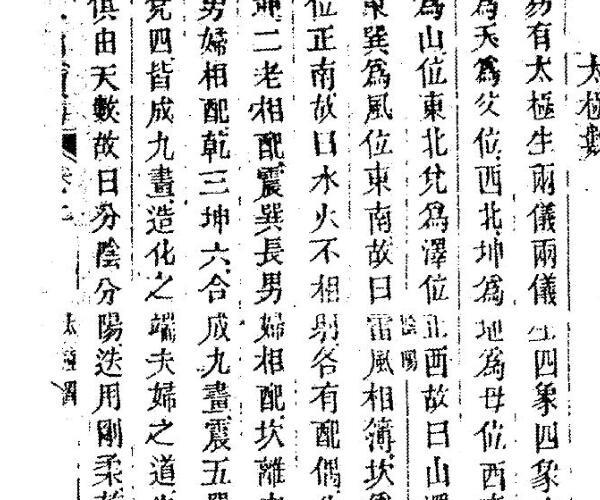 太極數
易有太極生兩儀兩儀生四象四象
為天為父位西北坤為地為母位西
為山位東北兌為澤位正西故曰山澤
東巽為風位東南故曰雷風相薄坎為
位正南故曰水火不相射各有配偶
坤二老相配震巽長男婦相配坎離
男婦相配乾三坤六合成九畫震五
兌四皆成九畫造化之端夫婦之道
俱由天數故曰分陰分陽迭用剛柔